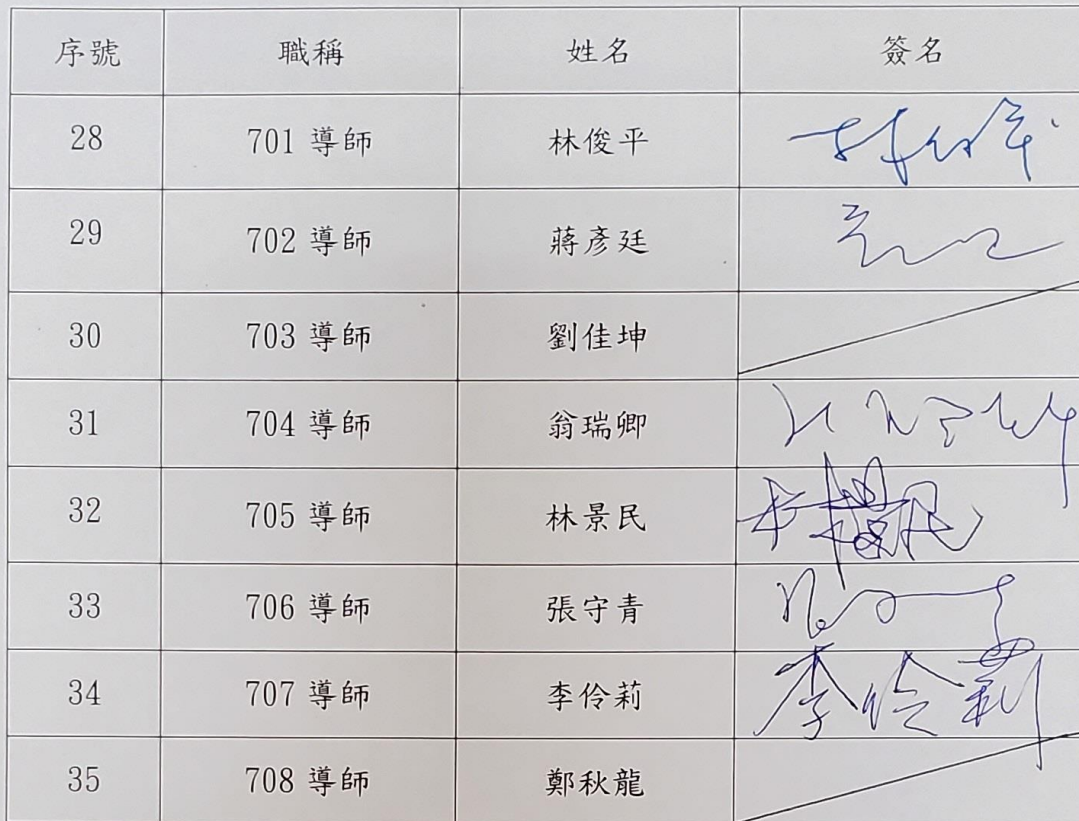 序號 職稱 姓名 簽名
28 701 導師 林俊平
29 702 導師 蔣彥廷
30 703 導師 劉佳坤
31 704 導師 翁瑞卿
32 705 導師 林景民
33 706 導師 張守青
34 707 導師 李伶莉 李伶莉
35 708 導師 鄭秋龍